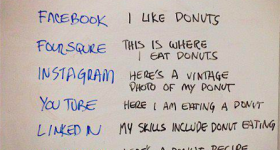 FACEBOOK I LIKE DONUTS
FOURSQURE THIS IS WHERE
I EAT DONUTS
INSTAGRAM HERE'S A VINTAGE
PHOTO OF MY DONUT
YOUTUBE HERE I AM EATING A DONUT
LINKED IN MY SKILLS INCLUDE DONUT EATING
HERE'S A DONUT RECIPE